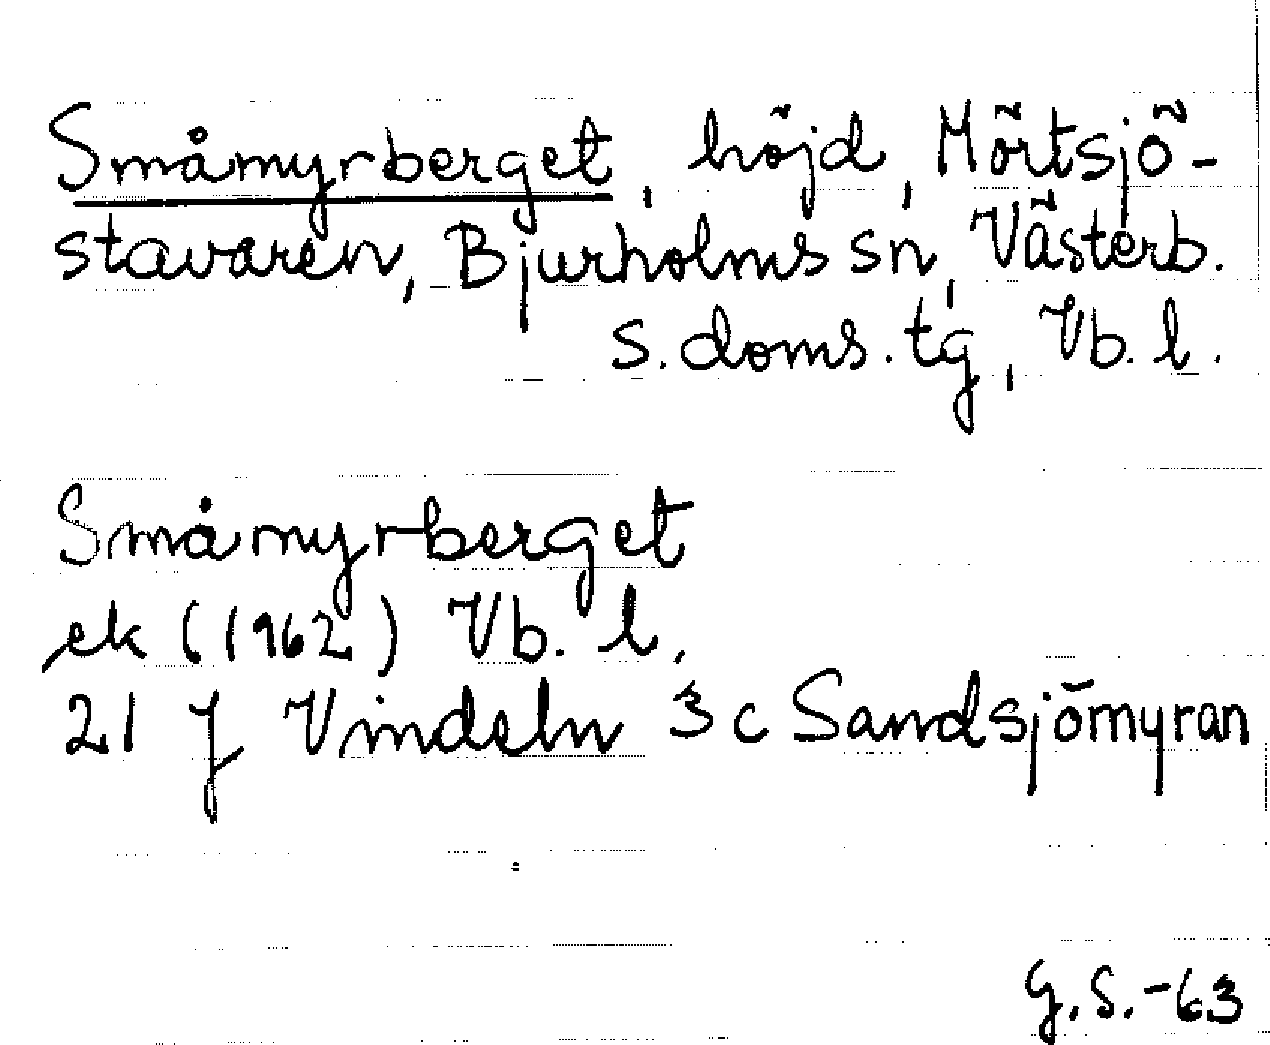 Småmyrberget, höjd, Mörtsjö-
stavaren, Bjurholms sn, Västerb.
s. doms. tg, Vb. l.
Småmyrberget
ek (1962) Vb. l.
21 J Vindeln 3 c Sandsjömyran
G.S.-63